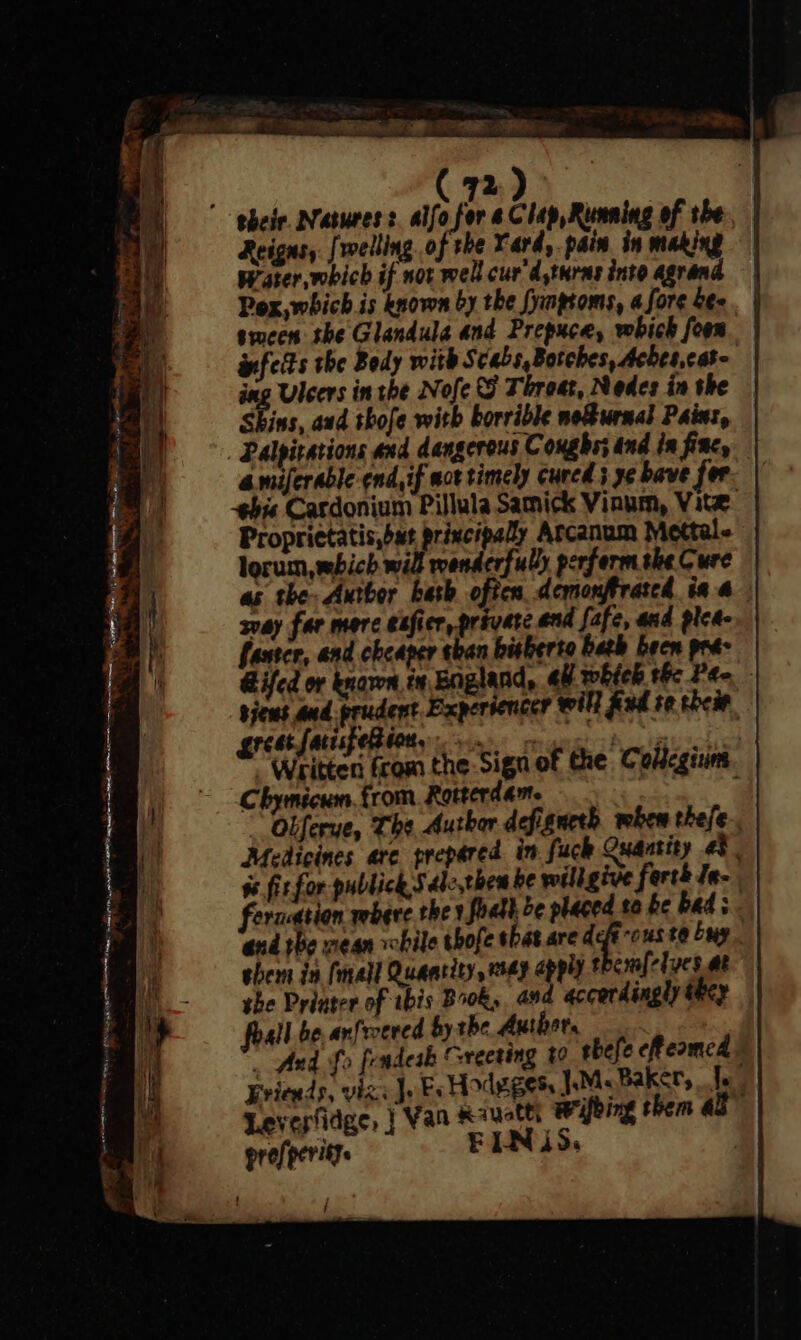 ( 72 )
their Natures: alſo for a Clap, Running of the
Reigns, ſwelling of the Yard, pain in making
Water, which if not well cur'd, turns into a grand
Pox, which is known by the ſymptoms, a ſore be-
tween the Glandula and Prepuce, which ſoon
infects the Body with Scabs, Botches, Aches, eat-
ing Ulcers in the Noſe & Throat, Nodes in the
Shins, and thoſe with horrible nocturnal Pains,
Palpitations and dangerous Coughs; and in fine,
a miſerable end, if not timely cured; ye have for
this Cardonium Pillula Samick Vinum, Vitæ
Proprietatis, but principally Arcanum Mettal-
lorum, which will wonderfully perform the Cure
as the Author hath often demonſtrated in a
way far more eaſier, private and ſafe, and plea-
ſanter, and cheaper than hitherto hath been pra-
ctiſed or known in England, all which the Pa-
tient and prudent Experiencer will find to their
great ſatisfection.
Written from the Sign of the Collegium
Chymicum from Rotterdam.
Obſerve, The Author deſigneth when theſe
Medicines are prepared in ſuch Quantity as
is fit for publick Sale, then he will give forth In-
formation where they ſhall be placed to be had;
and the mean while thoſe that are deſirous to buy
them in ſmall Quantity, may apply themſelves at
the Printer of this Book, and accordingly they
ſhall be anſwered by the Author.
And ſo ſendeth Greeting to theſe eſteomed
Friends, viz. J. F. Hodgges, J. M. Baker, J.
Leverſidge, J Van
Wiſhing them all
proſperity.
FINIS.